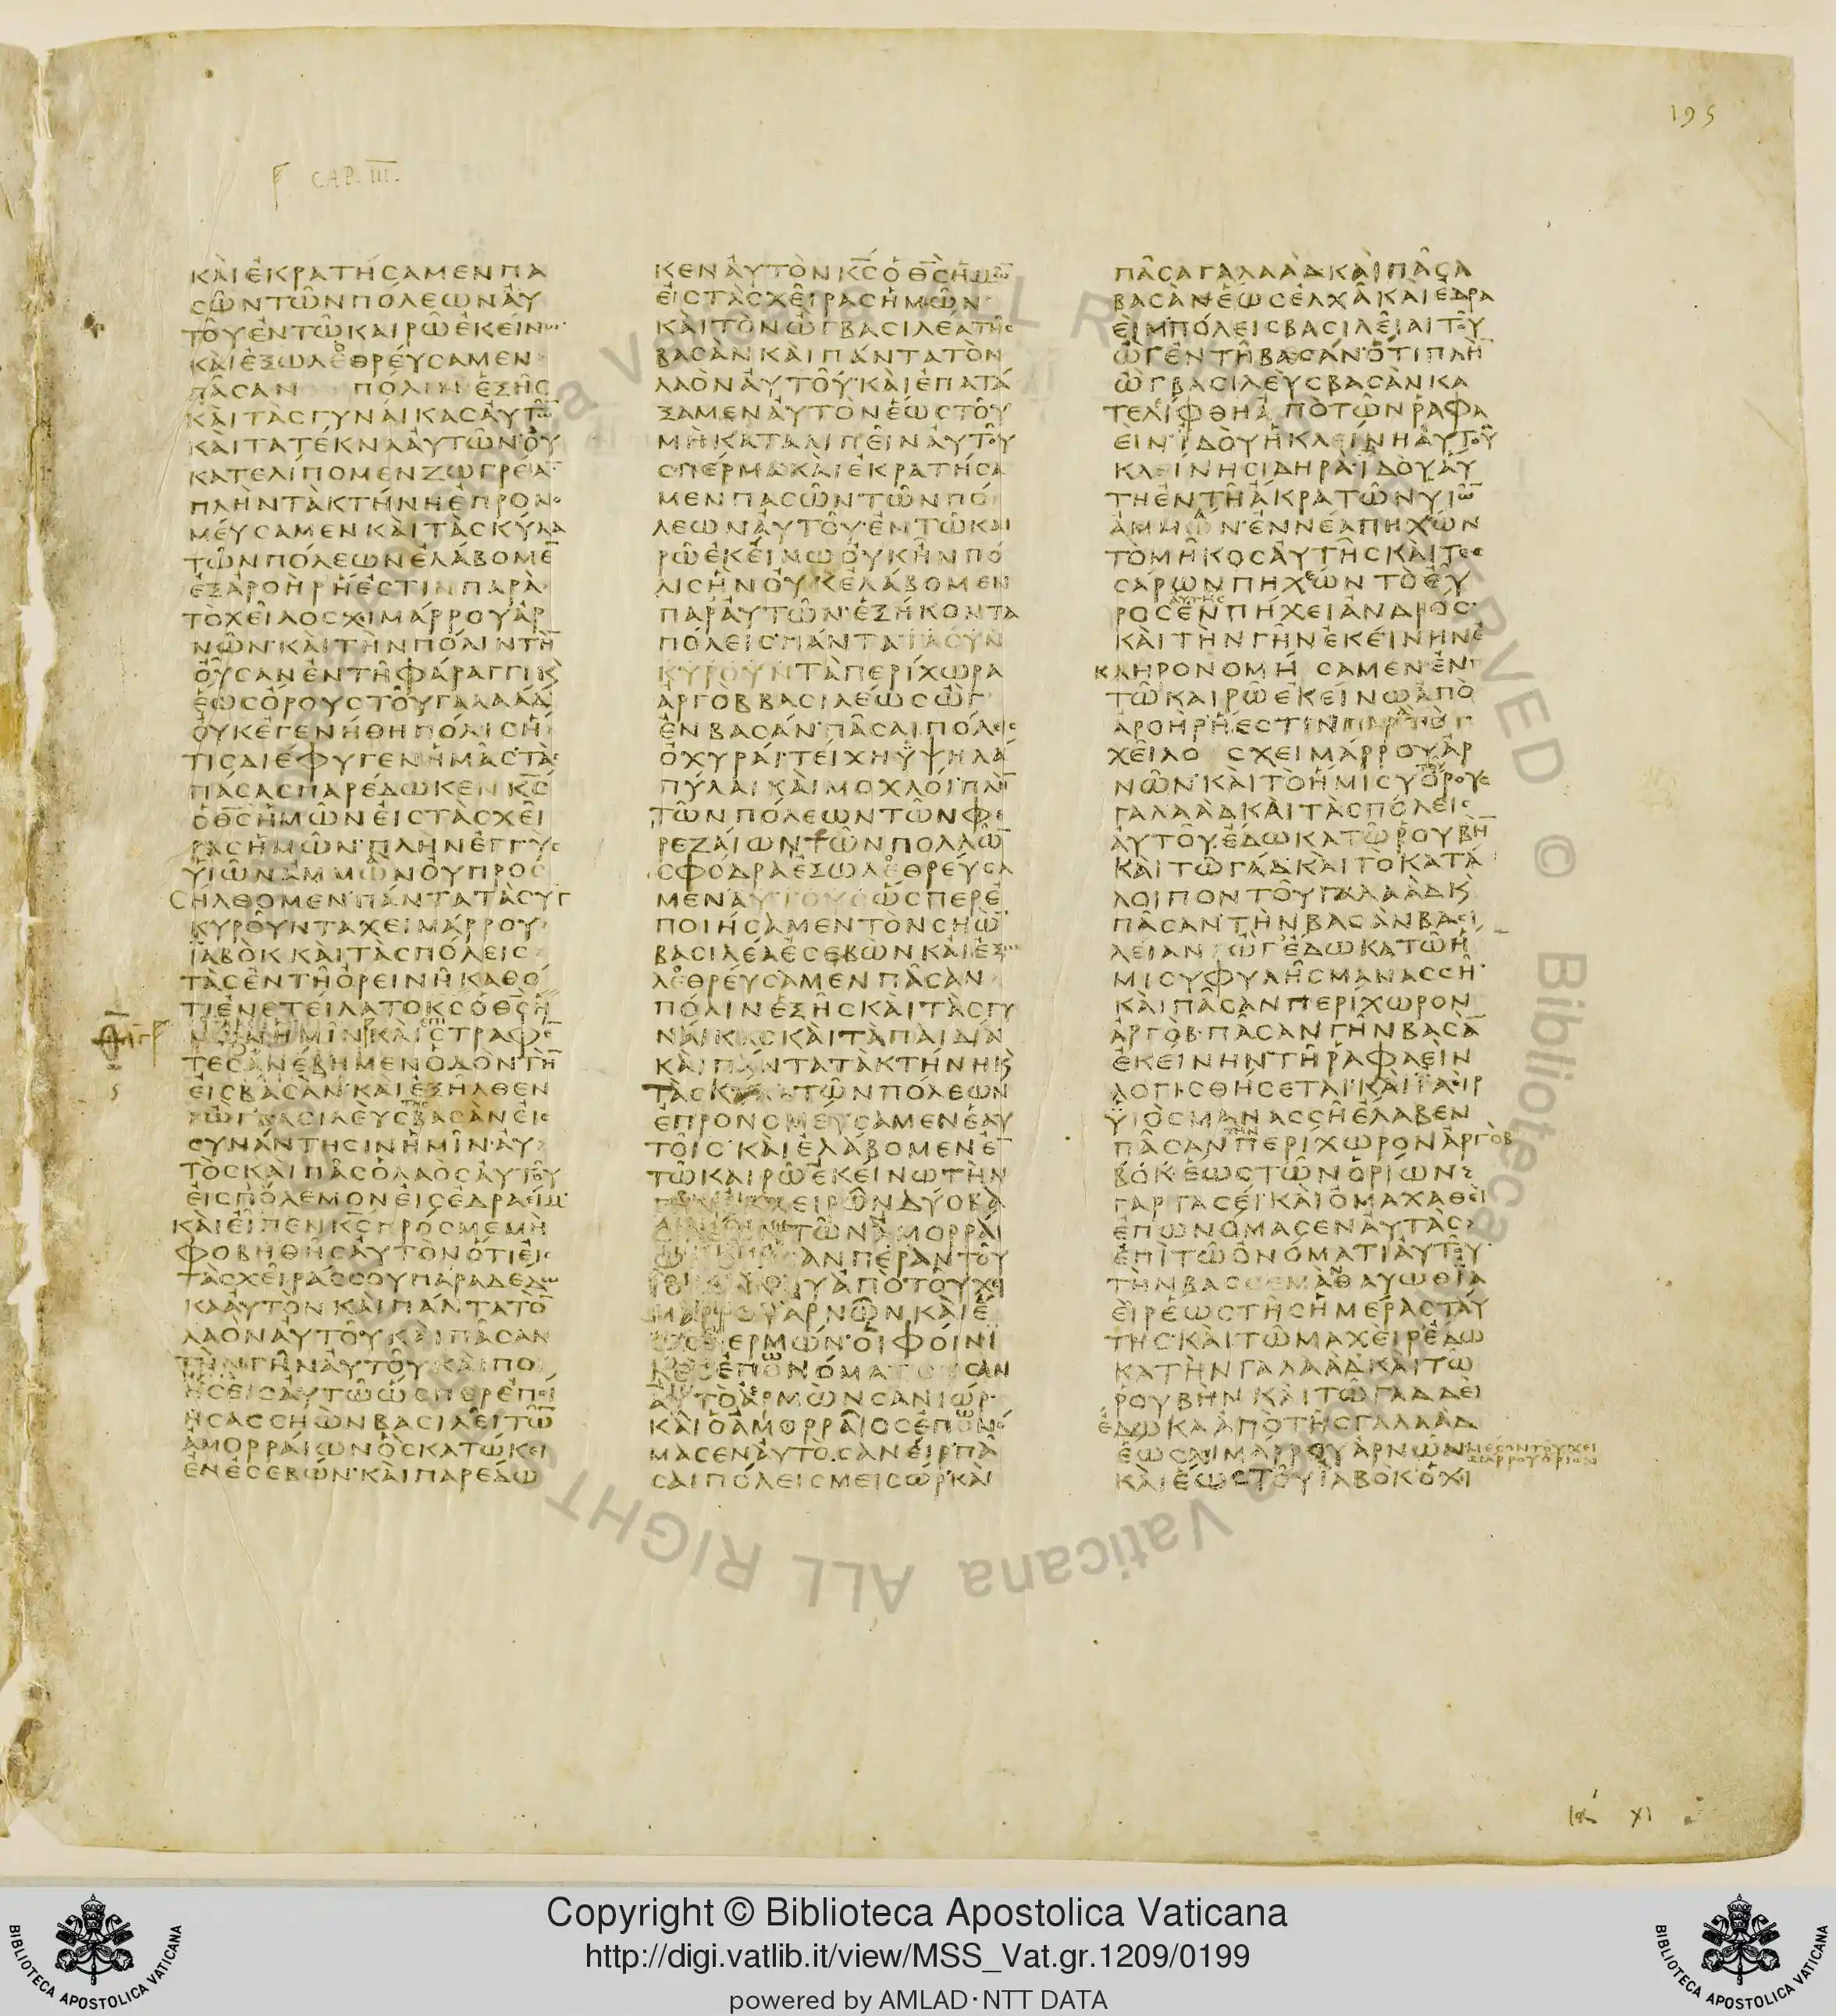 195
CAP. III.
ΚΑΙΕΚΡΑΤΗСΑΜΕΝΠΑ
СΩΝΤΩΝΠΟΛΕΩΝΑΥ
ΤΟΥΕΝΤΩΚΑΙΡΩΕΚΕΙΝΩ
ΚΑΙΕΞΩΛΕΘΡΕΥСΑΜΕΝ
ΠΑСΑΝ ΠΟΛΙΝΕΞΗС
ΚΑΙΤΑСΓΥΝΑΙΚΑСΑΥΤΩ̅
ΚΑΙΤΑΤΕΚΝΑΑΥΤΩΝΟΥ
ΚΑΤΕΛΙΠΟΜΕΝΖΩΓΡΕΙΑ̅
ΠΛΗΝΤΑΚΤΗΝΗΕΠΡΟΝΟ
ΜΕΥСΑΜΕΝΚΑΙΤΑСΚΥΛΑ
ΤΩΝΠΟΛΕΩΝΕΛΑΒΟΜΕ̅
ΕΞΑΡΟΗΡΗΕСΤΙΝΠΑΡΑ
ΤΟΧΕΙΛΟСΧΙΜΑΡΡΟΥΑΡ
ΝΩΝΚΑΙΤΗΝΠΟΛΙΝΤΗ̅
ΟΥСΑΝΕΝΤΗΦΑΡΑΓΓΙΚ
ΕΩСΟΡΟΥСΤΟΥΓΑΛΑΑΔ
ΟΥΚΕΓΕΝΗΘΗΠΟΛΙСΗ
ΤΙСΔΙΕΦΥΓΕΝΗΜΑСΤΑС
ΠΑСΑСΠΑΡΕΔΩΚΕΝΚ̅С̅
ΟΘ̅С̅ΗΜΩΝΕΙСΤΑСΧΕΙ
ΡΑСΗΜΩΝΠΛΗΝΕΓΓΥС
ΥΙΩΝΑΜΜΩΝΟΥΠΡΟС
СΗΛΘΟΜΕΝΠΑΝΤΑΤΑСΥΓ
ΚΥΡΟΥΝΤΑΧΕΙΜΑΡΡΟΥ
ΙΑΒΟΚΚΑΙΤΑСΠΟΛΕΙС
ΤΑСΕΝΤΗΟΡΕΙΝΗΚΑΘΟ
ΤΙΕΝΕΤΕΙΛΑΤΟΚ̅С̅ΟΘ̅С̅Η
ΜΩΝΗΜΙΝΚΑΙΕΠΙСΤΡΑΦΕ̅
ΤΕСΑΝΕΒΗΜΕΝΟΔΟΝΤΗ̅
ΕΙСΒΑСΑΝΚΑΙΕΞΗΛΘΕΝ
ΩΓΒΑСΙΛΕΥСΤΗСΒΑСΑΝΕΙС
СΥΝΑΝΤΗСΙΝΗΜΙΝΑΥ
ΤΟСΚΑΙΠΑСΟΛΑΟСΑΥΤΟΥ
ΕΙСΠΟΛΕΜΟΝΕΙСΕΔΡΑΕΙΜ
ΚΑΙΕΙΠΕΝΚ̅С̅ΠΡΟСΜΕΜΗ
ΦΟΒΗΘΗСΑΥΤΟΝΟΤΙΕΙС
ΤΑСΧΕΙΡΑССΟΥΠΑΡΑΔΕΔΩ
ΚΑΑΥΤΟΝΚΑΙΠΑΝΤΑΤΟ̅
ΛΑΟΝΑΥΤΟΥΚΑΙΠΑСΑΝ
ΤΗΝΓΗΝΑΥΤΟΥΚΑΙΠΟΙ
ΗСΕΙСΑΥΤΩΩСΠΕΡΕΠΟΙ
ΗСΑССΗΩΝΒΑСΙΛΕΙΤΩ̅
ΑΜΟΡΡΑΙΩΝΟСΚΑΤΩΚΕΙ
ΕΝΕСΕΒΩΝΚΑΙΠΑΡΕΔΩ
ΚΕΝΑΥΤΟΝΚ̅С̅ΟΘ̅С̅ΗΜΩ̅
ΕΙСΤΑСΧΕΙΡΑСΗΜΩΝ
ΚΑΙΤΟΝΩΓΒΑСΙΛΕΑΤΗС
ΒΑСΑΝΚΑΙΠΑΝΤΑΤΟΝ
ΛΑΟΝΑΥΤΟΥΚΑΙΕΠΑΤΑ
ΞΑΜΕΝΑΥΤΟΝΕΩСΤΟΥ
ΜΗΚΑΤΑΛΙΠΕΙΝΑΥΤΟΥ
СΠΕΡΜΑΚΑΙΕΚΡΑΤΗСΑ
ΜΕΝΠΑСΩΝΤΩΝΠΟ
ΛΕΩΝΑΥΤΟΥΕΝΤΩΚΑΙ
ΡΩΕΚΕΙΝΩΟΥΚΗΝΠΟ
ΛΙСΗΝΟΥΚΕΛΑΒΟΜΕΝ
ΠΑΡΑΥΤΩΝΕΞΗΚΟΝΤΑ
ΠΟΛΕΙСΠΑΝΤΑΤΑСΥΝ
ΚΥΡΟΥΝΤΑΠΕΡΙΧΩΡΑ
ΑΡΓΟΒΒΑСΙΛΕΩСΩΓ
ΕΝΒΑСΑΝΠΑСΑΙΠΟΛΕΙС
ΟΧΥΡΑΙΤΕΙΧΗΥΨΗΛΑ
ΠΥΛΑΙΚΑΙΜΟΧΛΟΙΠΛΗ̅
ΤΩΝΠΟΛΕΩΝΤΩΝΦΕ
ΡΕΖΑΙΩΝΤΩΝΠΟΛΛΩ̅
СΦΟΔΡΑΕΞΩΛΕΘΡΕΥСΑ
ΜΕΝΑΥΤΟΥСΩСΠΕΡΕ
ΠΟΙΗСΑΜΕΝΤΟΝСΗΩ̅
ΒΑСΙΛΕΑΕСΕΒΩΝΚΑΙΕΞΩ
ΛΕΘΡΕΥСΑΜΕΝΠΑСΑΝ
ΠΟΛΙΝΕΞΗСΚΑΙΤΑСΓΥ
ΝΑΙΚΑСΚΑΙΤΑΠΑΙΔΙΑ
ΚΑΙΠΑΝΤΑΤΑΚΤΗΝΗΚ
ΤΑСΚΥΛΑΤΩΝΠΟΛΕΩΝ
ΕΠΡΟΝΟΜΕΥСΑΜΕΝΕΑΥ
ΤΟΙСΚΑΙΕΛΑΒΟΜΕΝΕ̅
ΤΩΚΑΙΡΩΕΚΕΙΝΩΤΗΝ
ΓΗΝΕΚΧΕΙΡΩΝΔΥΟΒΑ
ΤΩΝΑΜΟΡΡΑΙ
ΑΝΠΕΡΑΝΤΟΥ
ΑΠΟΤΟΥΧΕΙ
ΜΑΡΡΟΥΑΡΝΩΝΚΑΙΕ
ΩСΑΕΡΜΩΝΟΙΦΟΙΝΙ
ΚΕСΕΠΟΝΟΜΑΖΟΥСΙΝ
ΑΥΤΟΑΕΡΜΩΝСΑΝΙΩΡ
ΚΑΙΟΑΜΟΡΡΑΙΟСΕΠΟΝΟ
ΜΑСΕΝΑΥΤΟСΑΝΕΙΡΠΑ
СΑΙΠΟΛΕΙСΜΕΙСΩΡΚΑΙ
ΠΑСΑΓΑΛΑΑΔΚΑΙΠΑСΑ
ΒΑСΑΝΕΩСΕΛΧΑΚΑΙΕΔΡΑ
ΕΙΜΠΟΛΕΙСΒΑСΙΛΕΙΑΙΤΟΥ
ΩΓΕΝΤΗΒΑСΑΝΟΤΙΠΛΗ̅
ΩΓΒΑСΙΛΕΥСΒΑСΑΝΚΑ
ΤΕΛΙΦΘΗΑΠΟΤΩΝΡΑΦΑ
ΕΙΝΙΔΟΥΗΚΛΕΙΝΗΑΥΤΟΥ
ΚΛΕΙΝΗСΙΔΗΡΑΙΔΟΥΑΥ
ΤΗΕΝΤΗΑΚΡΑΤΩΝΥΙΩ̅
ΑΜΜΩΝΕΝΝΕΑΠΗΧΩΝ
ΤΟΜΗΚΟСΑΥΤΗСΚΑΙΤΕС
СΑΡΩΝΠΗΧΕΩΝΤΟΕΥ
ΡΟСΑΥΤΗСΕΝΠΗΧΕΙΑΝΔΡΟС
ΚΑΙΤΗΝΓΗΝΕΚΕΙΝΗΝΕ
ΚΛΗΡΟΝΟΜΗ СΑΜΕΝΕΝ
ΤΩΚΑΙΡΩΕΚΕΙΝΩΑΠΟ
ΑΡΟΗΡΗΕСΤΙΝΠΑΡΑΤΟ
ΧΕΙΛΟ СΧΕΙΜΑΡΡΟΥΑΡ
ΝΩΝΚΑΙΤΟΗΜΙСΥΟΡΟΥС
ΓΑΛΑΑΔΚΑΙΤΑСΠΟΛΕΙС
ΑΥΤΟΥΕΔΩΚΑΤΩΡΟΥΒΗ̅
ΚΑΙΤΩΓΑΔΚΑΙΤΟΚΑΤΑ
ΛΟΙΠΟΝΤΟΥΓΑΛΑΑΔΚ
ΠΑСΑΝΤΗΝΒΑСΑΝΒΑСΙ
ΛΕΙΑΝ ΩΓΕΔΩΚΑΤΩΗ
ΜΙСΥΦΥΛΗСΜΑΝΑССΗ
ΚΑΙΠΑСΑΝΠΕΡΙΧΩΡΟΝ
ΑΡΓΟΒΠΑСΑΝΓΗΝΒΑСΑ̅
ΕΚΕΙΝΗΝΓΗΡΑΦΑΕΙΝ
ΛΟΓΙСΘΗСΕΤΑΙΚΑΙΙΑΙΡ
ΥΙΟСΜΑΝΑССΗΕΛΑΒΕΝ
ΠΑСΑΝΤΗΝΠΕΡΙΧΩΡΟΝΑΡΓΟΒ
ΒΟΚΕΩСΤΩΝΟΡΙΩΝ
ΓΑΡΓΑСΕΙΚΑΙΟΜΑΧΑΘΕΙ
ΕΠΩΝΟΜΑСΕΝΑΥΤΑС
ΕΠΙΤΩΟΝΟΜΑΤΙΑΥΤΟΥ
ΤΗΝΒΑССΕΜΑΘΑΥΩΘΙΑ
ΕΙΡΕΩСΤΗСΗΜΕΡΑСΤΑΥ
ΤΗСΚΑΙΤΩΜΑΧΕΙΡΕΔΩ
ΚΑΤΗΝΓΑΛΑΑΔΚΑΙΤΩ
ΡΟΥΒΗΝΚΑΙΤΩΓΑΔΔΕΙ
ΕΔΩΚΑΑΠΟΤΗСΓΑΛΑΑΔ
ΕΩСΧΙΜΑΡΡΟΥΑΡΝΩΝΜΕСΟΝΤΟΥΧΕΙ
ΜΑΡΡΟΥΟΡΙΟΝ
ΚΑΙΕΩСΤΟΥΙΑΒΟΚΟΧΙ
XI
Copyright © Biblioteca Apostolica Vaticana
http://digi.vatlib.it/view/MSS_Vat.gr.1209/0199
powered by AMLAD·NTT DATA
BIBLIOTECA APOSTOLICA VATICANA
BIBLIOTECA APOSTOLICA VATICANA